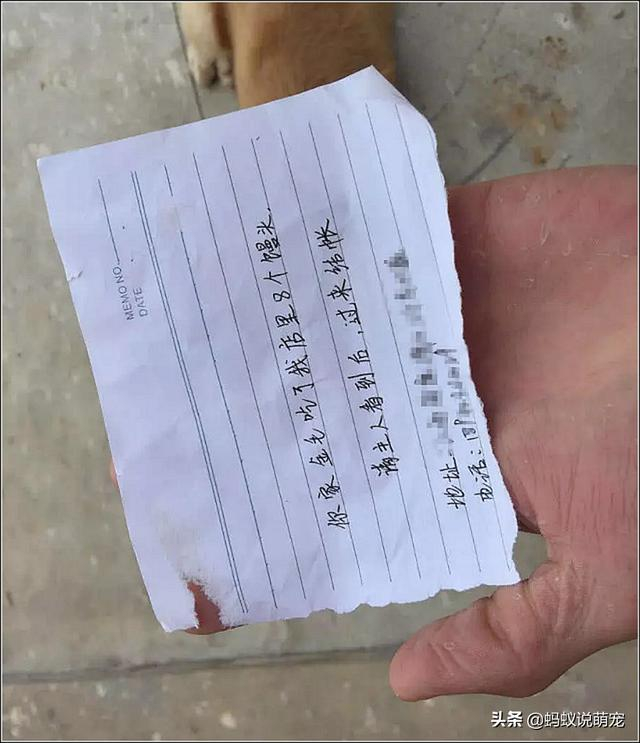 MEMO NO.
DATE
你家金毛吃了我店里8个馒头.
请主人看到后,过来结帐
地址:
电话:
头条 @蚂蚁说萌宠